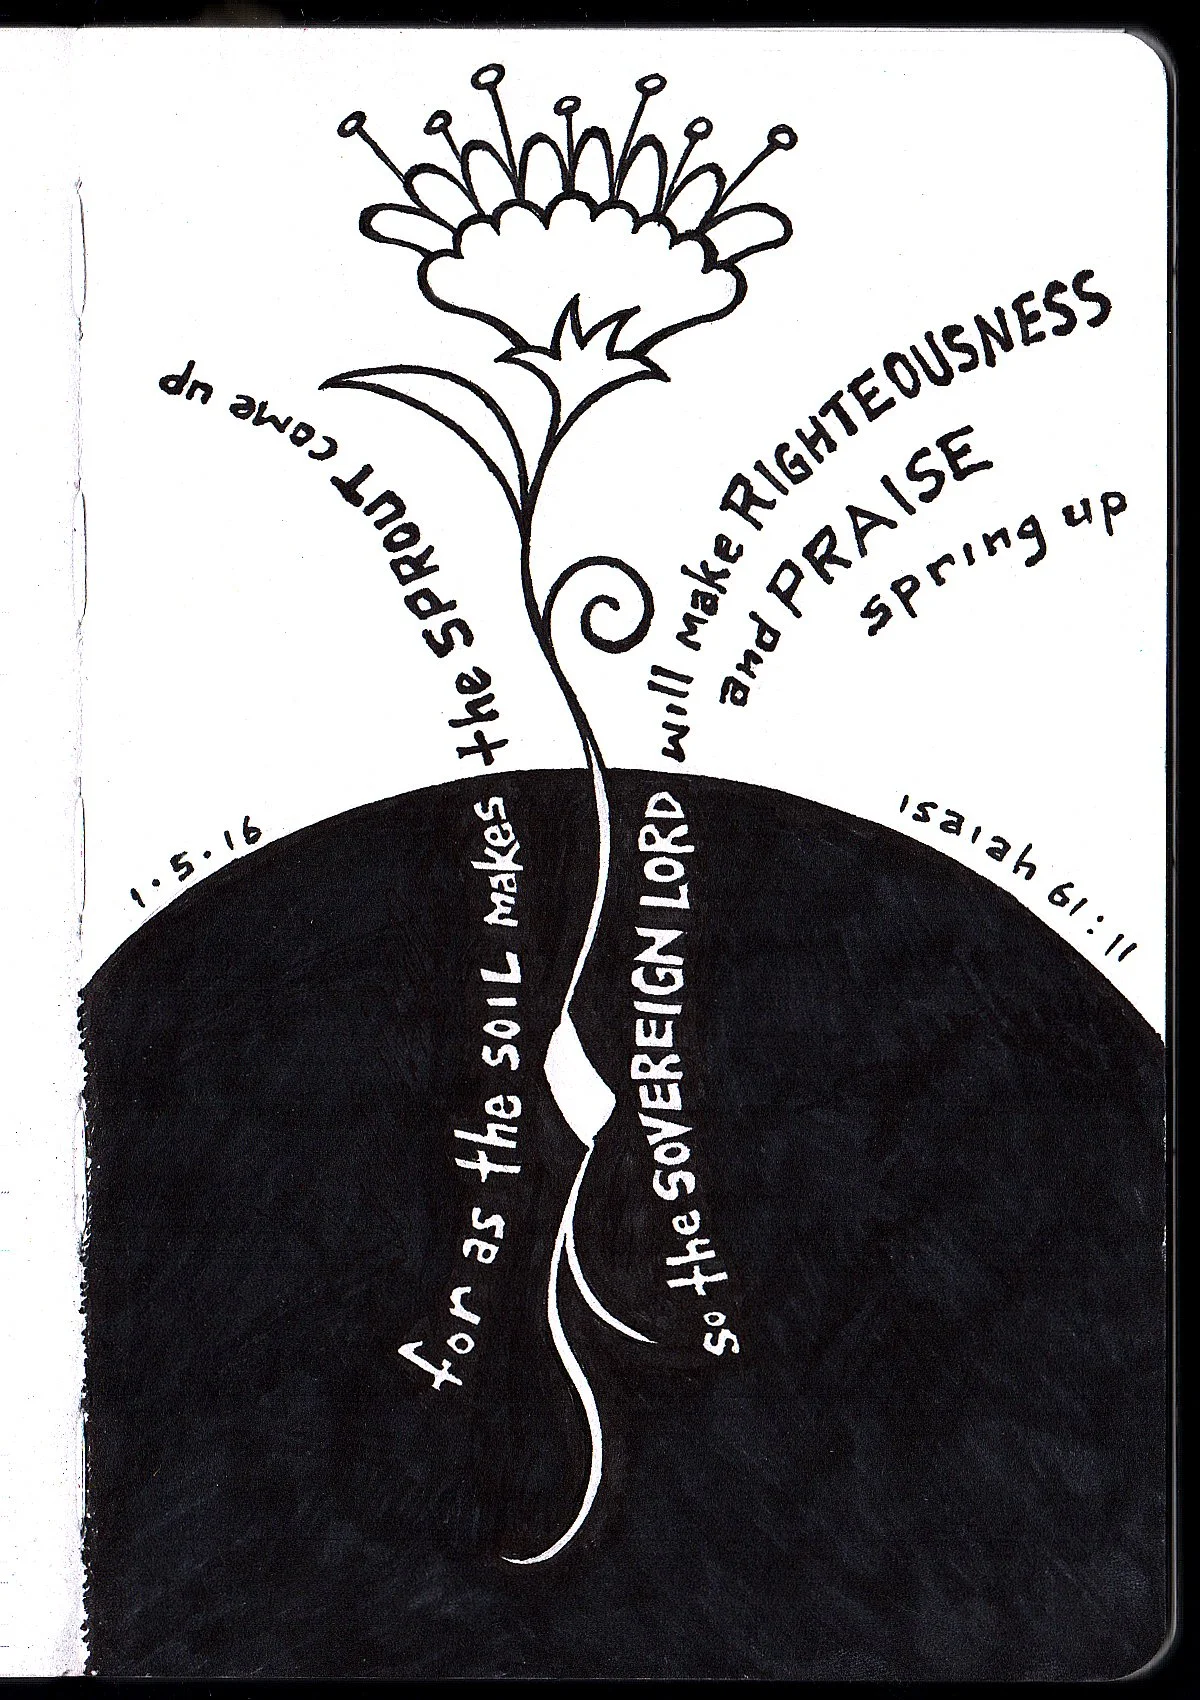 for as the SOIL makes the SPROUT come up
so the SOVEREIGN LORD will make RIGHTEOUSNESS
and PRAISE
spring up
1.5.16
Isaiah 61:11